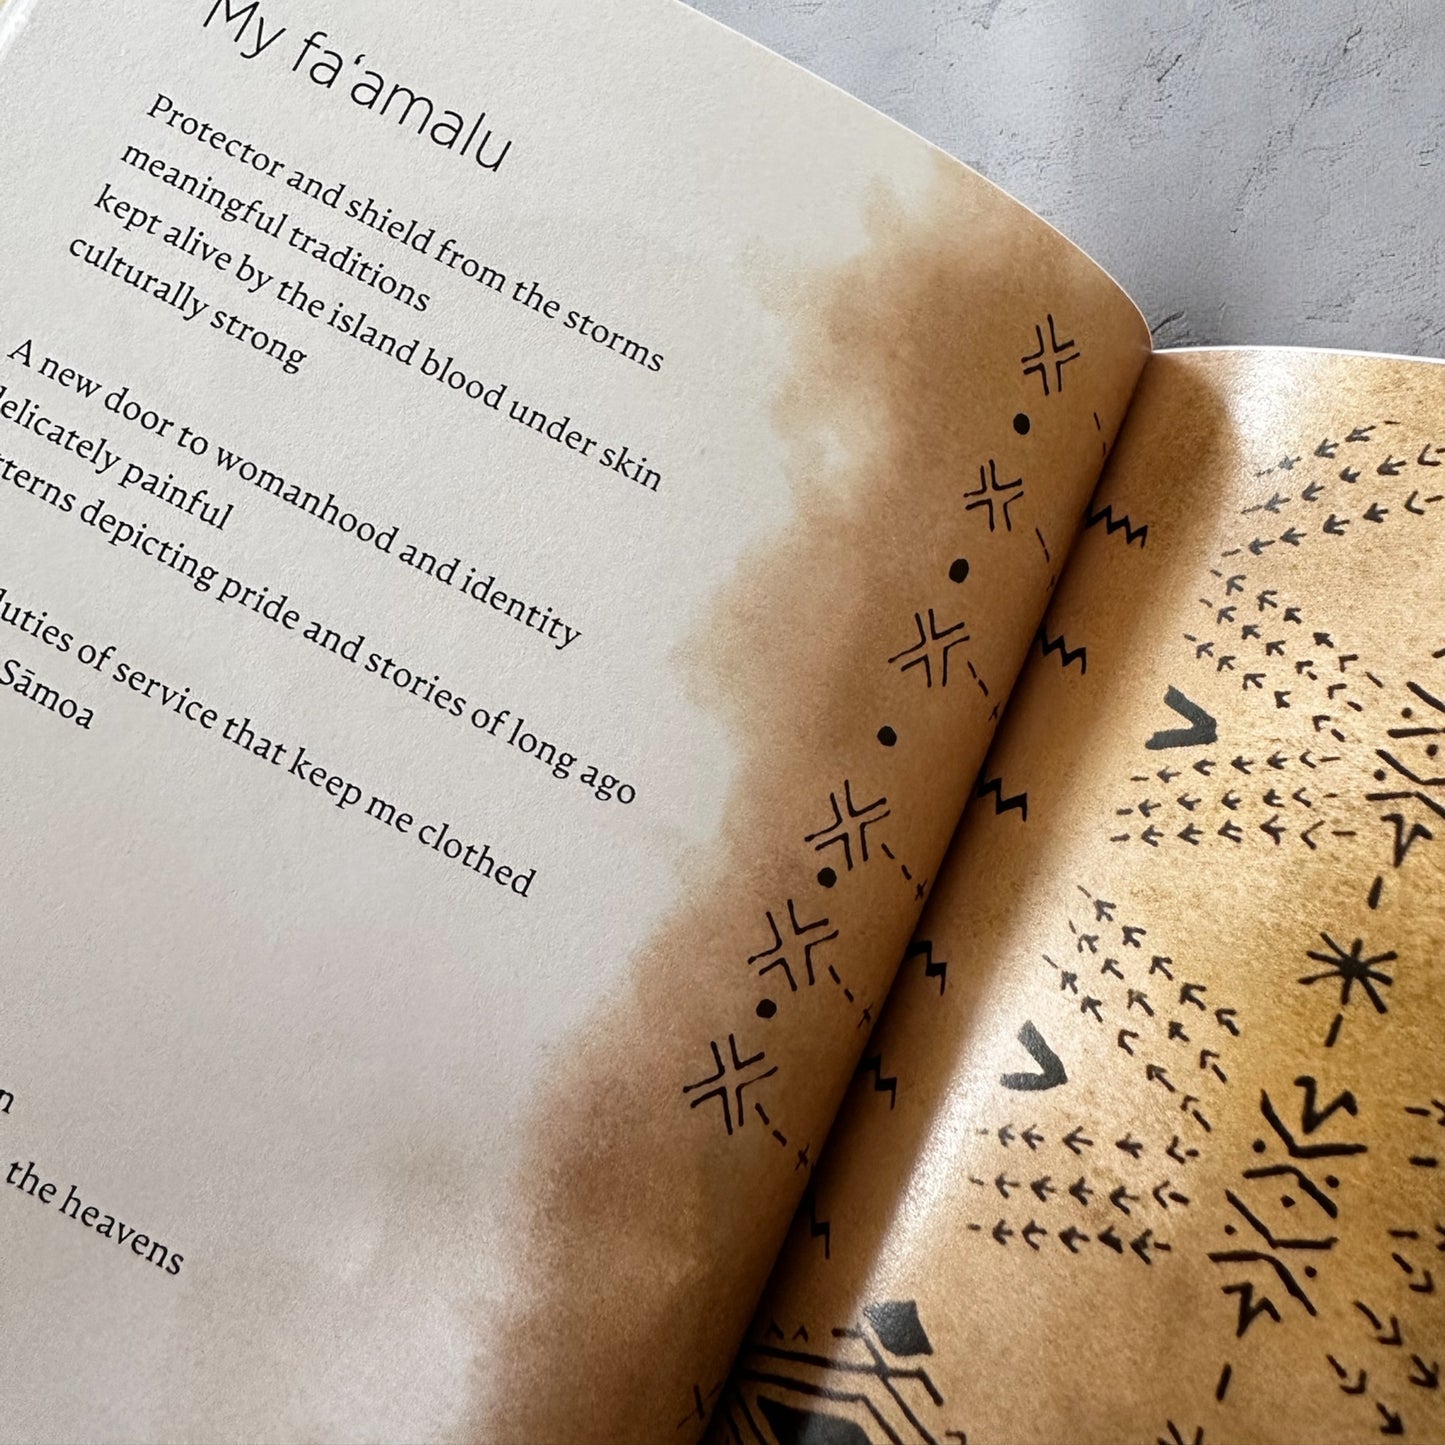 My fa‘amalu
Protector and shield from the storms
meaningful traditions
kept alive by the island blood under skin
culturally strong
A new door to womanhood and identity
delicately painful
depicting pride and stories of long ago
of service that keep me clothed
Sāmoa
the heavens